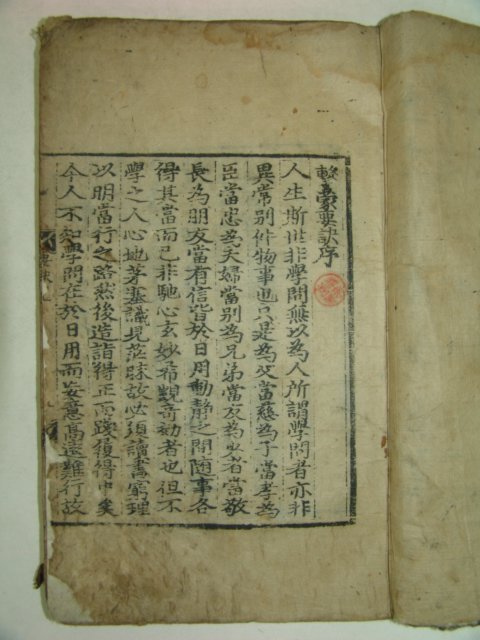 擊蒙要訣序
人生斯世非學問無以為人所謂學問者亦非
異常別件物事也只是為父當慈為子當孝為
臣當忠為夫婦當別為兄弟當友為少者當敬
長為朋友當有信皆於日用動靜之間随事各
得其當而已非馳心玄妙希覬奇効者也但不
學之人心地茅塞識見茫昧故必須讀書窮理
以明當行之路然後造詣得正而踐履得中矣
今人不知學問在於日用而妄意高遠難行故